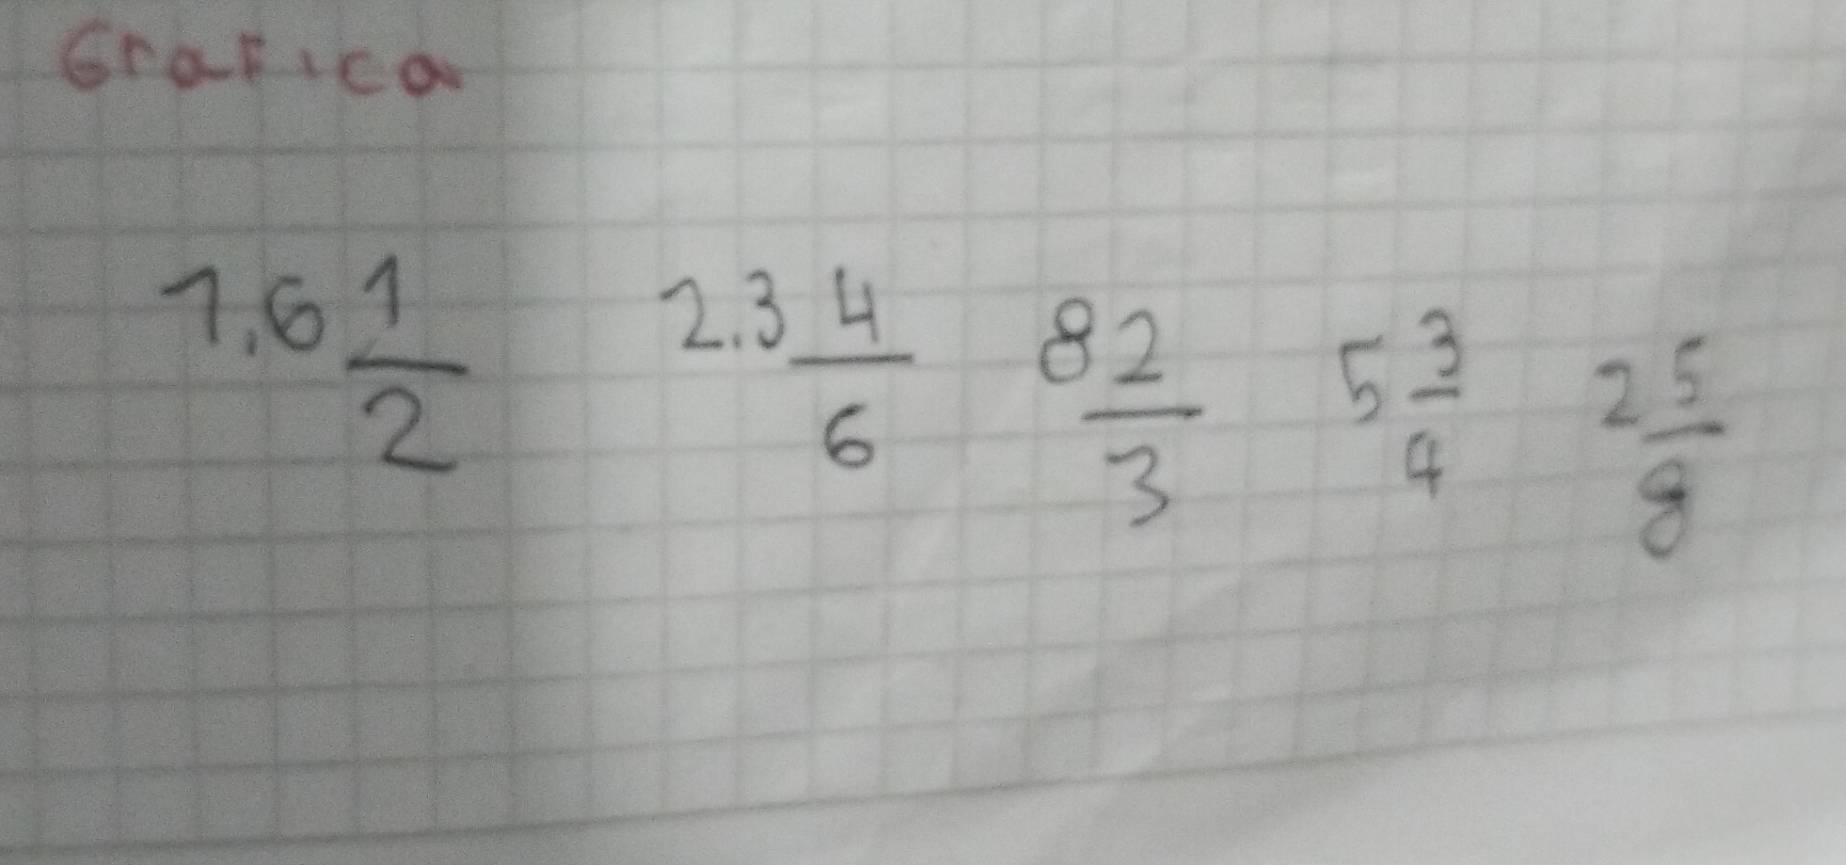 Grafica
1.6 1/2 2.3 4/6 8 2/3 5 3/4 2 5/8